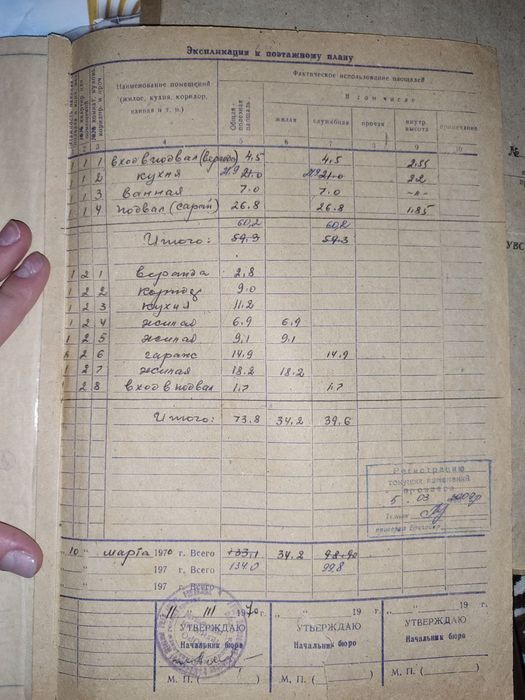 Экспликация к поэтажному плану
Наименование помещений (жилое, кухня, коридор, ванная и т. п.)
Фактическое использование площадей
Общая полезная площадь
В том числе
жилая служебная прочая внутр. высота примечание
3 4 5 6 7 8 9 10
1 1 1 вход в подвал (веранда) 4.5 4.5 2.55
1 1 2 кухня 21.9 21.0 21.9 21.0 2.2
1 1 3 ванная 7.0 7.0 -"-
1 1 4 подвал (сарай) 26.8 26.8 1.85
60,2 60,2
Итого: 59.3 59.3
1 2 1 веранда 2.8
1 2 2 коридор 9.0
1 2 3 кухня 11.2
1 2 4 жилая 6.9 6.9
1 2 5 жилая 9.1 9.1
2 6 гараж 14.9 14.9
1 2 7 жилая 18.2 18.2
1 2 8 вход в подвал 1.7 1.7
Итого: 73.8 34.2 39.6
Регистрацию
текущих изменений
провела
5 . 03
Техник
проверил бригадир
„ 10 " марта 1970 г. Всего 133,1 34,2 98.90
„ " 197 г. Всего 134.0 99.8
„ " 197 г. Всего
11 III 1970 г.
УТВЕРЖДАЮ
Начальник бюро
М. П. ( )
„ " 19 г.
УТВЕРЖДАЮ
Начальник бюро
М. П. ( )
„ " 19 г.
УТВЕРЖДАЮ
Начальник бюро
М. П. ( )
УВС